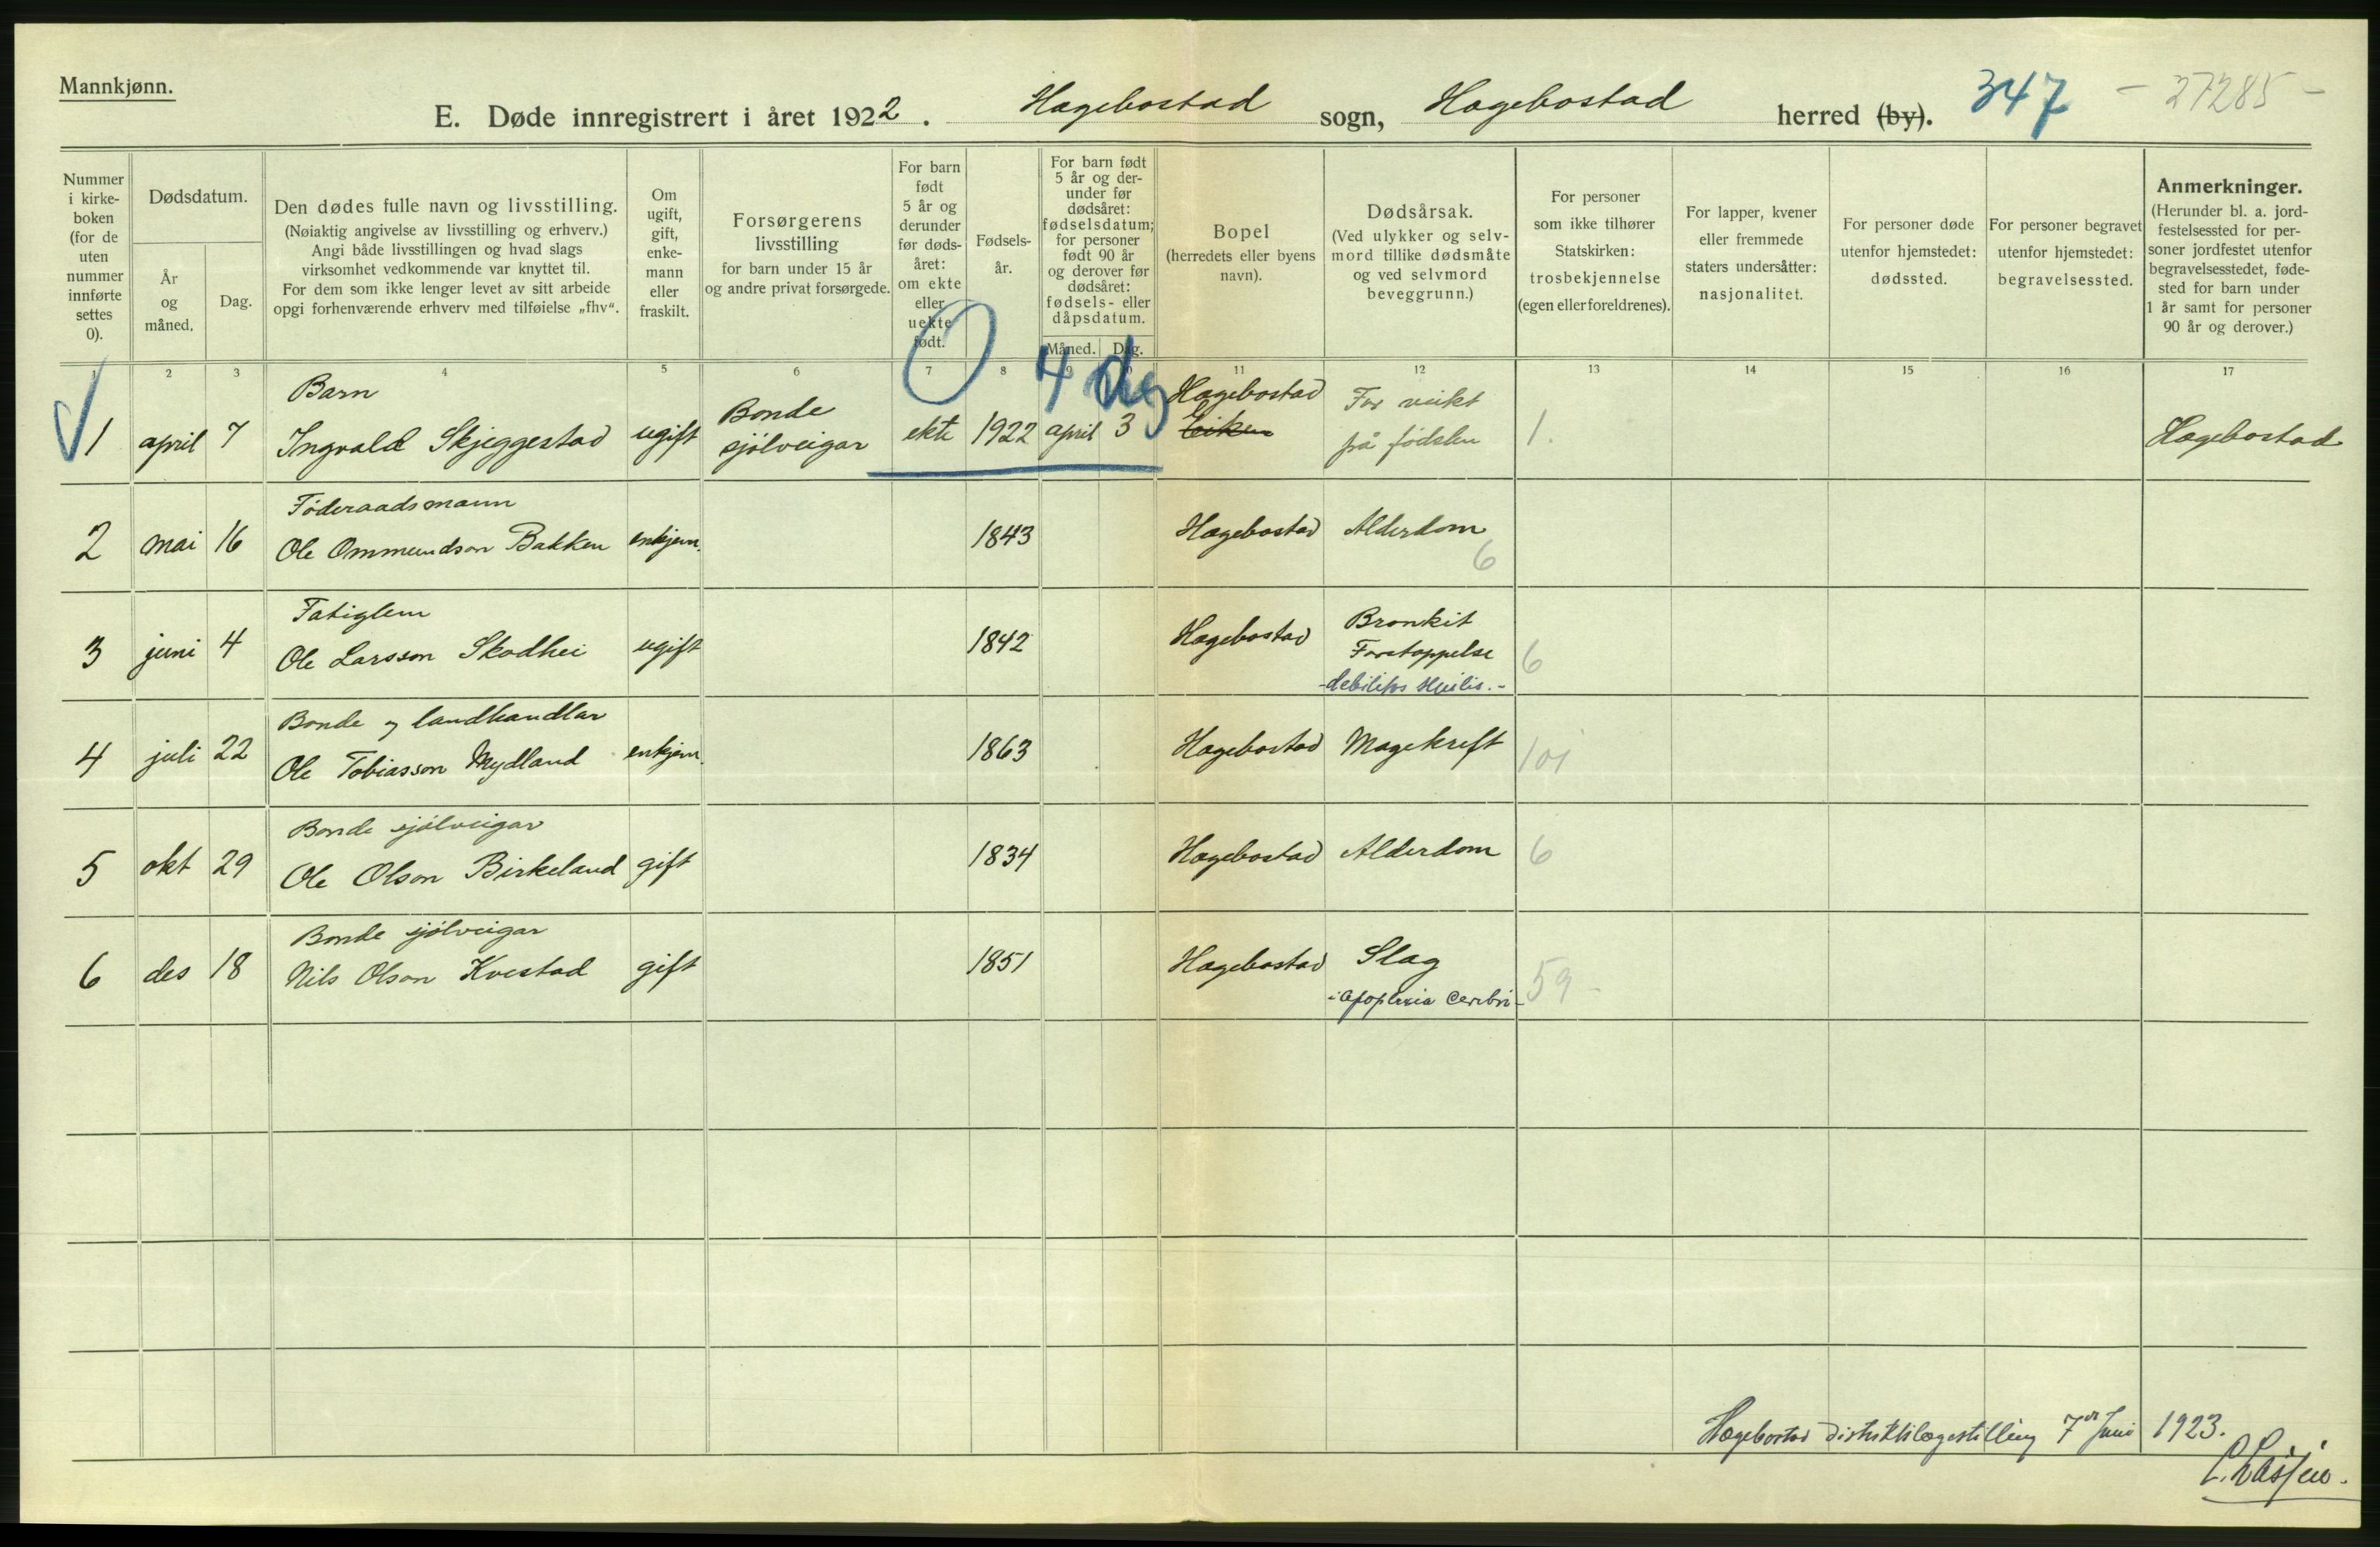 Mannkjønn.
E. Døde innregistrert i året 1922. Hægebostad sogn, Hægebostad herred (by). 347 - 27285 -
Nummer i kirke-boken (for de uten nummer innførte settes 0).
Dødsdatum.
År og måned.
Dag.
Den dødes fulle navn og livsstilling.
(Nøiaktig angivelse av livsstilling og erhverv.)
Angi både livsstillingen og hvad slags
virksomhet vedkommende var knyttet til.
For dem som ikke lenger levet av sitt arbeide
opgi forhenværende erhverv med tilføielse „fhv“.
Om ugift, gift, enke-mann eller fraskilt.
Forsørgerens livsstilling
for barn under 15 år
og andre privat forsørgede.
For barn født 5 år og derunder før døds-året: om ekte eller uekte født.
Fødsels-år.
For barn født 5 år og der-under før dødsåret: fødselsdatum; for personer født 90 år og derover før dødsåret: fødsels- eller dåpsdatum.
Måned. Dag.
Bopel
(herredets eller byens navn).
Dødsårsak.
(Ved ulykker og selv-mord tillike dødsmåte og ved selvmord beveggrunn.)
For personer som ikke tilhører Statskirken: trosbekjennelse (egen eller foreldrenes).
For lapper, kvener eller fremmede staters undersåtter: nasjonalitet.
For personer døde utenfor hjemstedet: dødssted.
For personer begravet utenfor hjemstedet: begravelsessted.
Anmerkninger.
(Herunder bl. a. jord-festelsessted for per-soner jordfestet utenfor begravelsesstedet, føde-sted for barn under 1 år samt for personer 90 år og derover.)
1 2 3 4 5 6 7 8 9 10 11 12 13 14 15 16 17
4 dg
Barn Bonde Hægebostad For veikt
1 april 7 Ingvald Skjeggestad ugift sjölveigar ekte 1922 april 3 Eiken på födslen 1. Hægebostad
Föderaadsmann
2 mai 16 Ole Ommundson Bakken enkjem. 1843 Hægebostad Alderdom
6
Fatiglem Bronkit
3 juni 4 Ole Larsson Skodhei ugift 1842 Hægebostad Forstoppelse 6
-debilitas senilis.-
Bonde og landhandlar
4 juli 22 Ole Tobiasson Mydland enkjem. 1863 Hægebostad Magekreft 101
Bonde sjölveigar
5 okt 29 Ole Olson Birkeland gift 1834 Hægebostad Alderdom 6
Bonde sjölveigar
6 des 18 Nils Olson Kvestad gift 1851 Hægebostad Slag
-apoplexia cerebri- 59 -
Hægebostad distriktslægestilling 7 Juni 1923.